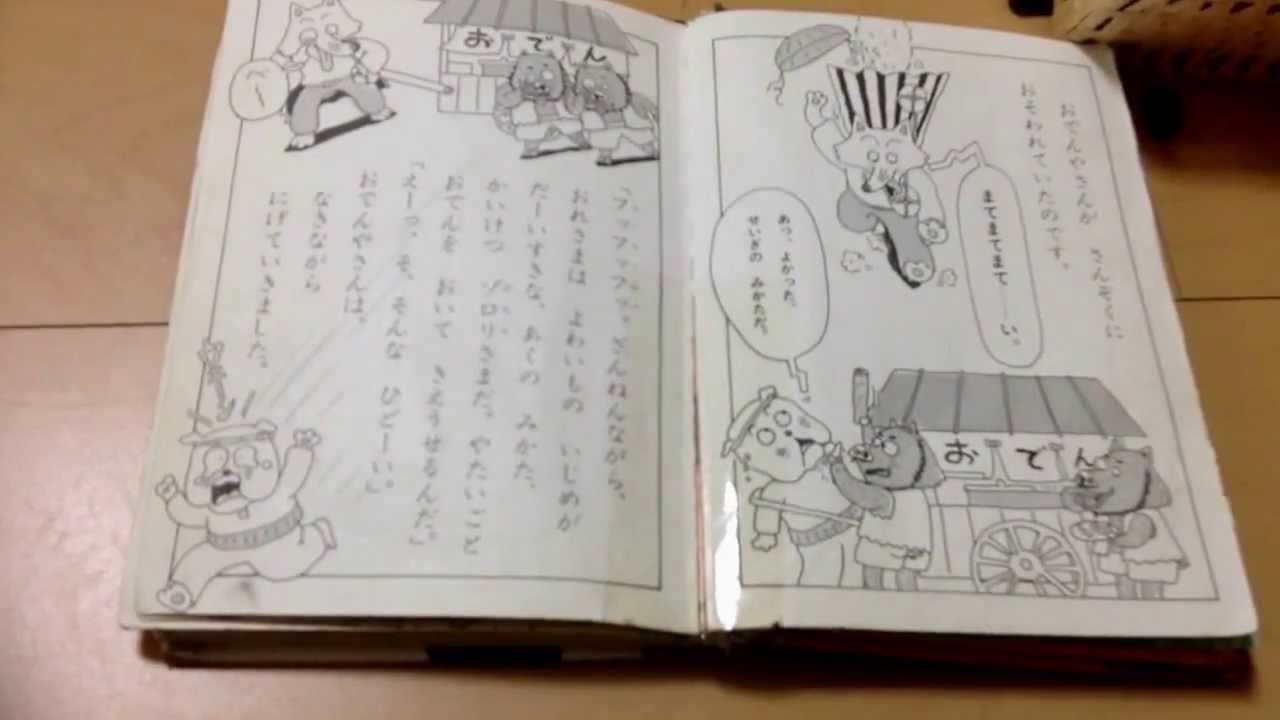 おでんやさんが さんぞくに
おそわれていたのです。
まてまてまて——い。
あっ、よかった。
せいぎの みかただ。
おでん
おでん
べーー
「フッフッフッ、ざんねんながら、
おれさまは よわいもの いじめが
だーいすきな、あくの みかた、
かいけつ ゾロリさまだ。やたいごと
おでんを おいて きえうせるんだ。」
「えーっ、そ、そんな ひどーい。」
おでんやさんは、
なきながら
にげていきました。